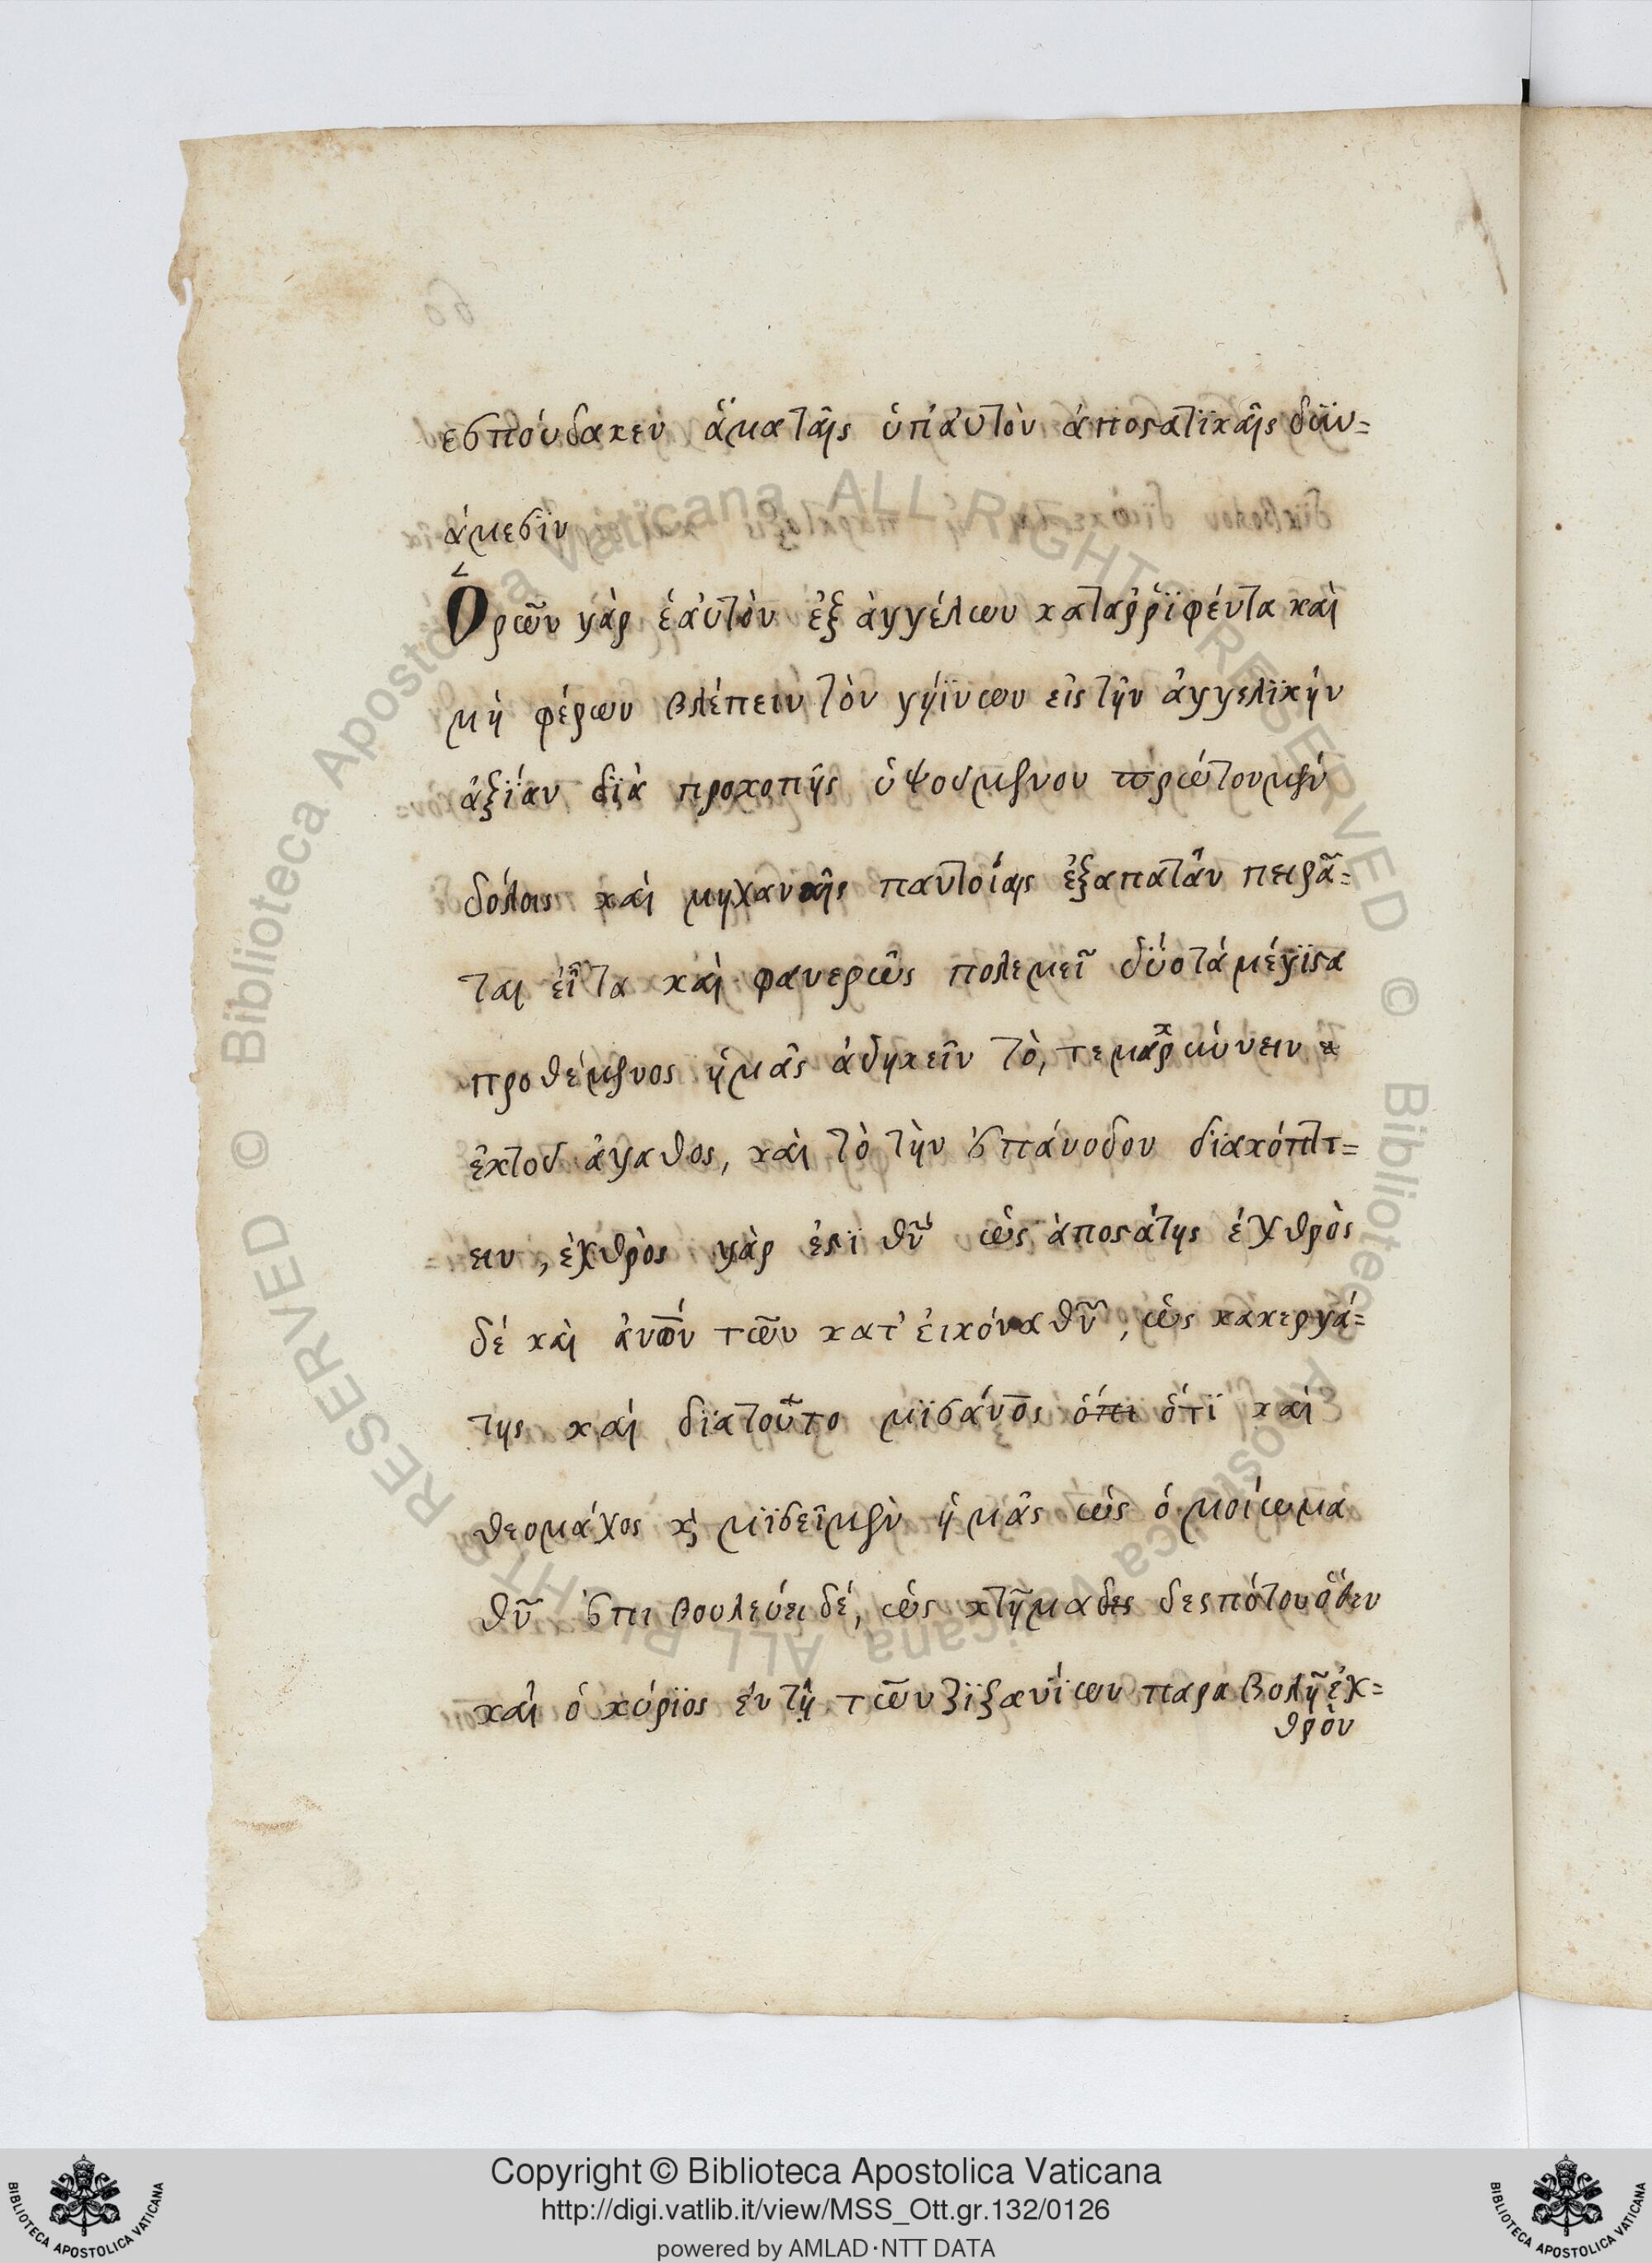 εσπούδακεν ἅμα ταῖς ὑπ' αὐτὸν ἀποστατϊκαῖς δϋν=
άμεσϊν
Ὁρῶν γὰρ ἑαὐτὸν ἐξ ἀγγέλων καταῤῥϊφέντα καὶ
μὴ φέρων βλέπειν τὸν γήϊνων εἰς τὴν ἀγγελϊκήν
ἀξϊάν δϊὰ προκοπῆς ὑψουμενου πρώτον μὲν
δόλοις καὶ μηχαναῖς παντοίαις ἐξαπατᾶν πειρᾶ=
ται εἶτα καὶ φανερῶς πολεμεῖ δϋό τά μέγϊστα
προθέμενος ἡμᾶς ἀδηκεῖν τὸ, τε μακρύνειν
ἐκτοῦ ἀγαθος, καὶ τὸ τὴν ἐπάνοδον δϊακόπτ=
ειν, ἐχθρὸς γὰρ ἐστϊ θῦ ὡς ἀποστάτης ἐχθρὸς
δέ καὶ ἀνῶν τῶν κατ' εἰκόνα θῦ, ὡς κακεργά=
της καὶ δϊατοῦτο μϊσάνος ὅτϊ καί
θεομάχος κ μϊσεῖ μὲν ἡμᾶς ὡς ὁμοίωμα
θῦ ἐπιβουλεύει δέ, ὡς κτῆμα δεσπότου ὅθεν
καὶ ὁ κύρϊος ἐν τῇ τῶν ζϊζανϊων παραβολῇ ἐχ=
θρὸν
Copyright © Biblioteca Apostolica Vaticana
http://digi.vatlib.it/view/MSS_Ott.gr.132/0126
powered by AMLAD·NTT DATA